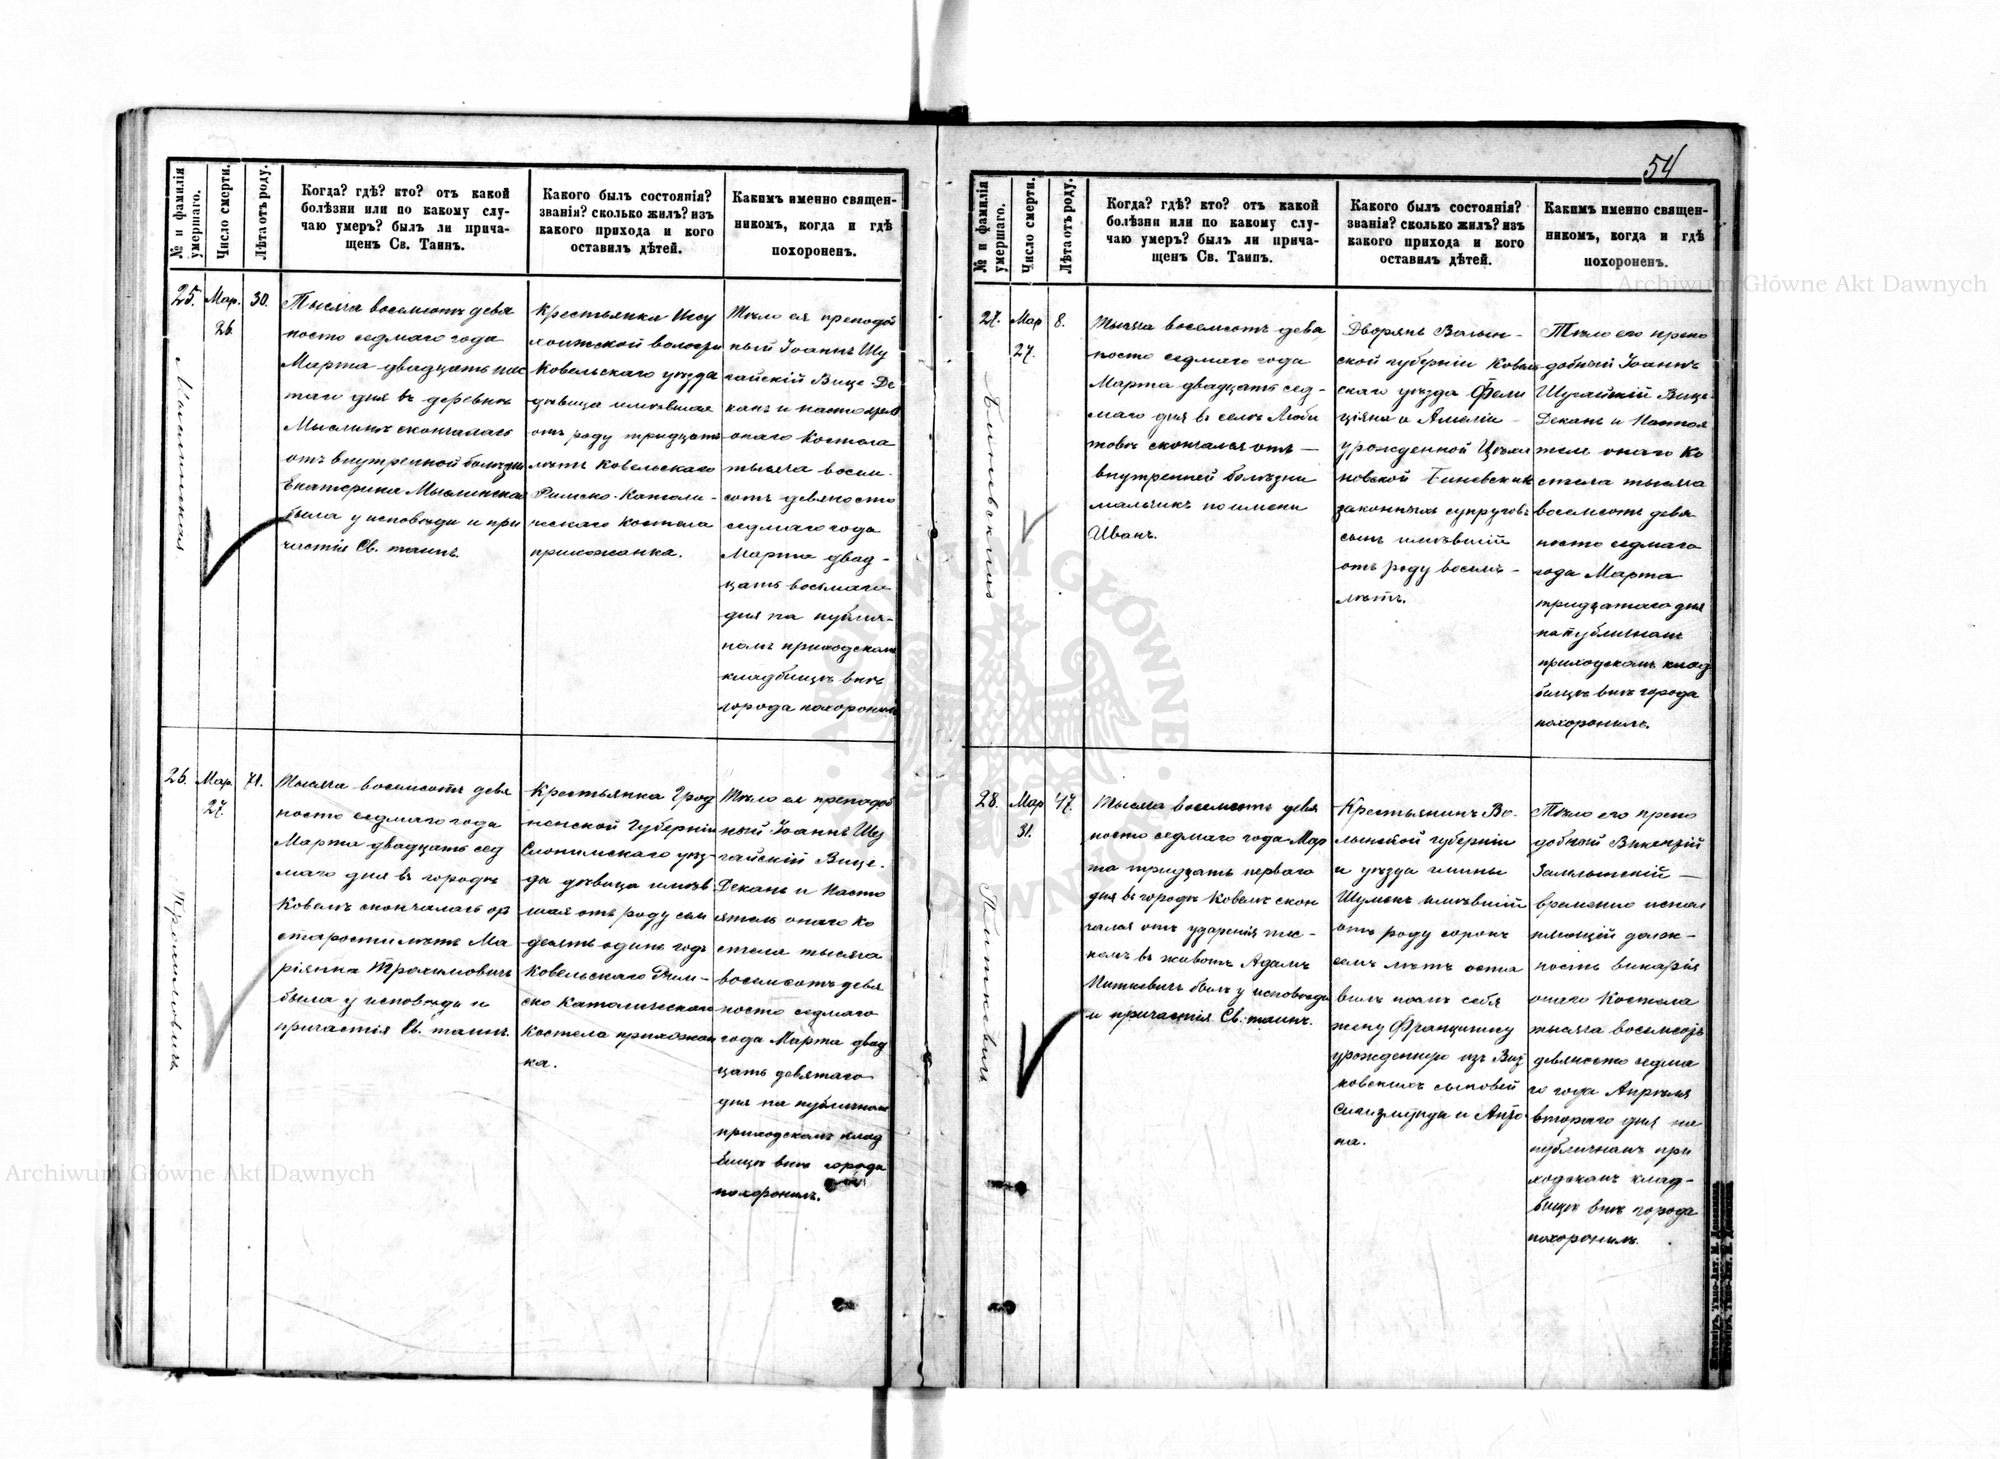 54
№ и фамилія умершаго.
Число смерти.
Лѣта отъ роду.
Когда? гдѣ? кто? отъ какой
болѣзни или по какому слу-
чаю умеръ? былъ ли прича-
щенъ Св. Таинъ.
Какого былъ состоянія?
званія? сколько жилъ? изъ
какого прихода и кого
оставилъ дѣтей.
Какимъ именно священ-
никомъ, когда и гдѣ
похороненъ.
25.
Мыслинская
Мар.
26.
30.
Тысяча восемсотъ девя
носто седмаго года
Марта двадцать шес
таго дня въ деревнѣ
Мыслинѣ скончалась
отъ внутренной болѣзни
Екатерина Мыслинская
была у исповѣди и при
частія Св. таинъ.
Крестьянка
волости
Ковельскаго уѣзда
дѣвица имѣвшая
отъ роду тридцать
лѣтъ Ковельскаго
Римско-Католи-
ческаго костела
прихожанка.
Тѣло ея преподоб
ный Іоаннъ Шу
гайскій Вице-Де
канъ и настоятель
онаго Костела
тысяча восем-
сотъ девяносто
седмаго года
Марта двад-
цать восьмаго
дня на публич-
номъ приходскомъ
кладбищѣ внѣ
города похоронилъ
26.
Трохимовичъ
Мар.
27.
71.
Тысяча восемсотъ девя
носто седмаго года
Марта двадцать сед
маго дня въ городѣ
Ковелѣ скончалась от
старости лѣтъ Ма
ріянна Трохимовичъ
была у исповѣди и
причастія Св. таинъ.
Крестьянка Грод
ненской Губерніи
Слонимскаго уѣз-
да дѣвица имѣв
шая отъ роду сем
десять одинъ годъ
Ковельскаго Рим-
ско Католическаго
костела прихожан
ка.
Тѣло ея преподоб
ный Іоаннъ Шу
гайскій Вице-
Деканъ и Насто
ятель онаго Ко
стела тысяча
восемсотъ девя
носто седмаго
года Марта двад
цать девятаго
дня на публичномъ
приходскомъ клад
бищѣ внѣ города
похоронилъ.
№ и фамилія умершаго.
Число смерти.
Лѣта отъ роду.
Когда? гдѣ? кто? отъ какой
болѣзни или по какому слу-
чаю умеръ? былъ ли прича-
щенъ Св. Таинъ.
Какого былъ состоянія?
званія? сколько жилъ? изъ
какого прихода и кого
оставилъ дѣтей.
Какимъ именно священ-
никомъ, когда и гдѣ
похороненъ.
27.
Биневскій
Мар
27.
8.
Тысяча восемсотъ девя
носто седмаго года
Марта двадцать сед-
маго дня въ селѣ Люби
товѣ скончался отъ —
внутренней болѣзни
мальчикъ по имени
Иванъ.
Дворянъ Волын-
ской губерніи Ковель
скаго уѣзда Фели
ціяна и Амеліи —
урожденной
Биневскихъ
законныхъ супруговъ
сынъ имѣвшій
отъ роду восемь —
лѣтъ.
Тѣло его препо
добный Іоаннъ
Шугайскій Вице-
Деканъ и Настоя
тель онаго Ко
стела тысяча
восемсотъ девя
носто седмаго
года Марта
тридцатаго дня
на публичномъ
приходскомъ клад
бищѣ внѣ города
похоронилъ.
28.
Питкевичъ
Мар
31.
47.
Тысяча восемсотъ девя
носто седмаго года Мар
та тридцать перваго
дня въ городѣ Ковелѣ скон
чался отъ ударенія
въ животъ Адамъ
Питкевичъ былъ у исповѣди
и причастія Св. таинъ.
Крестьянинъ Во-
лынской губерніи
и уѣзда гмины
Шумскъ имѣвшій
отъ роду сорокъ
семь лѣтъ оста
вилъ послѣ себя
жену Францишку
урожденную изъ
сыновей
Сигизмунда и Анто-
на.
Тѣло его препо
добный Викентій
—
временно испол
няющій долж-
ность викарія
онаго Костела
тысяча восемсотъ
девяносто седма
го года Апрѣля
втораго дня на
публичномъ при
ходскомъ клад-
бищѣ внѣ города
похоронилъ.
Archiwum Główne Akt Dawnych
Archiwum Główne Akt Dawnych
ARCHIWUM GŁÓWNE AKT DAWNYCH